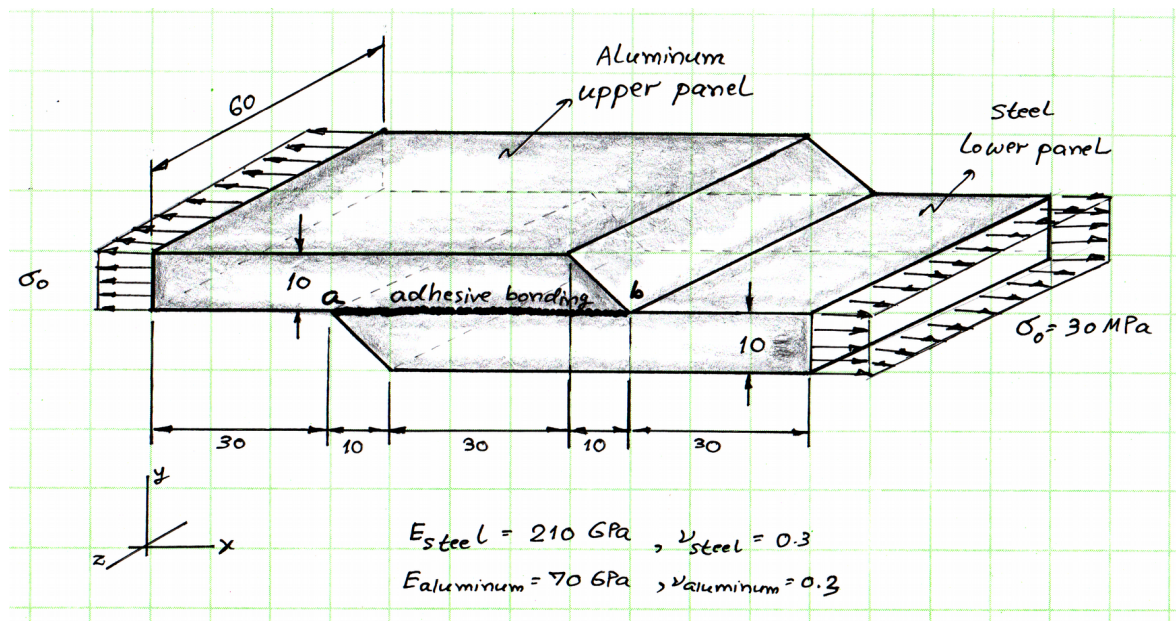 Aluminum
upper panel
60
Steel
Lower panel
σ₀
10
a
adhesive bonding
b
10
σ₀ = 30 MPa
30
10
30
10
30
y
x
z
Esteel = 210 GPa , νsteel = 0.3
Ealuminum = 70 GPa , νaluminum = 0.3